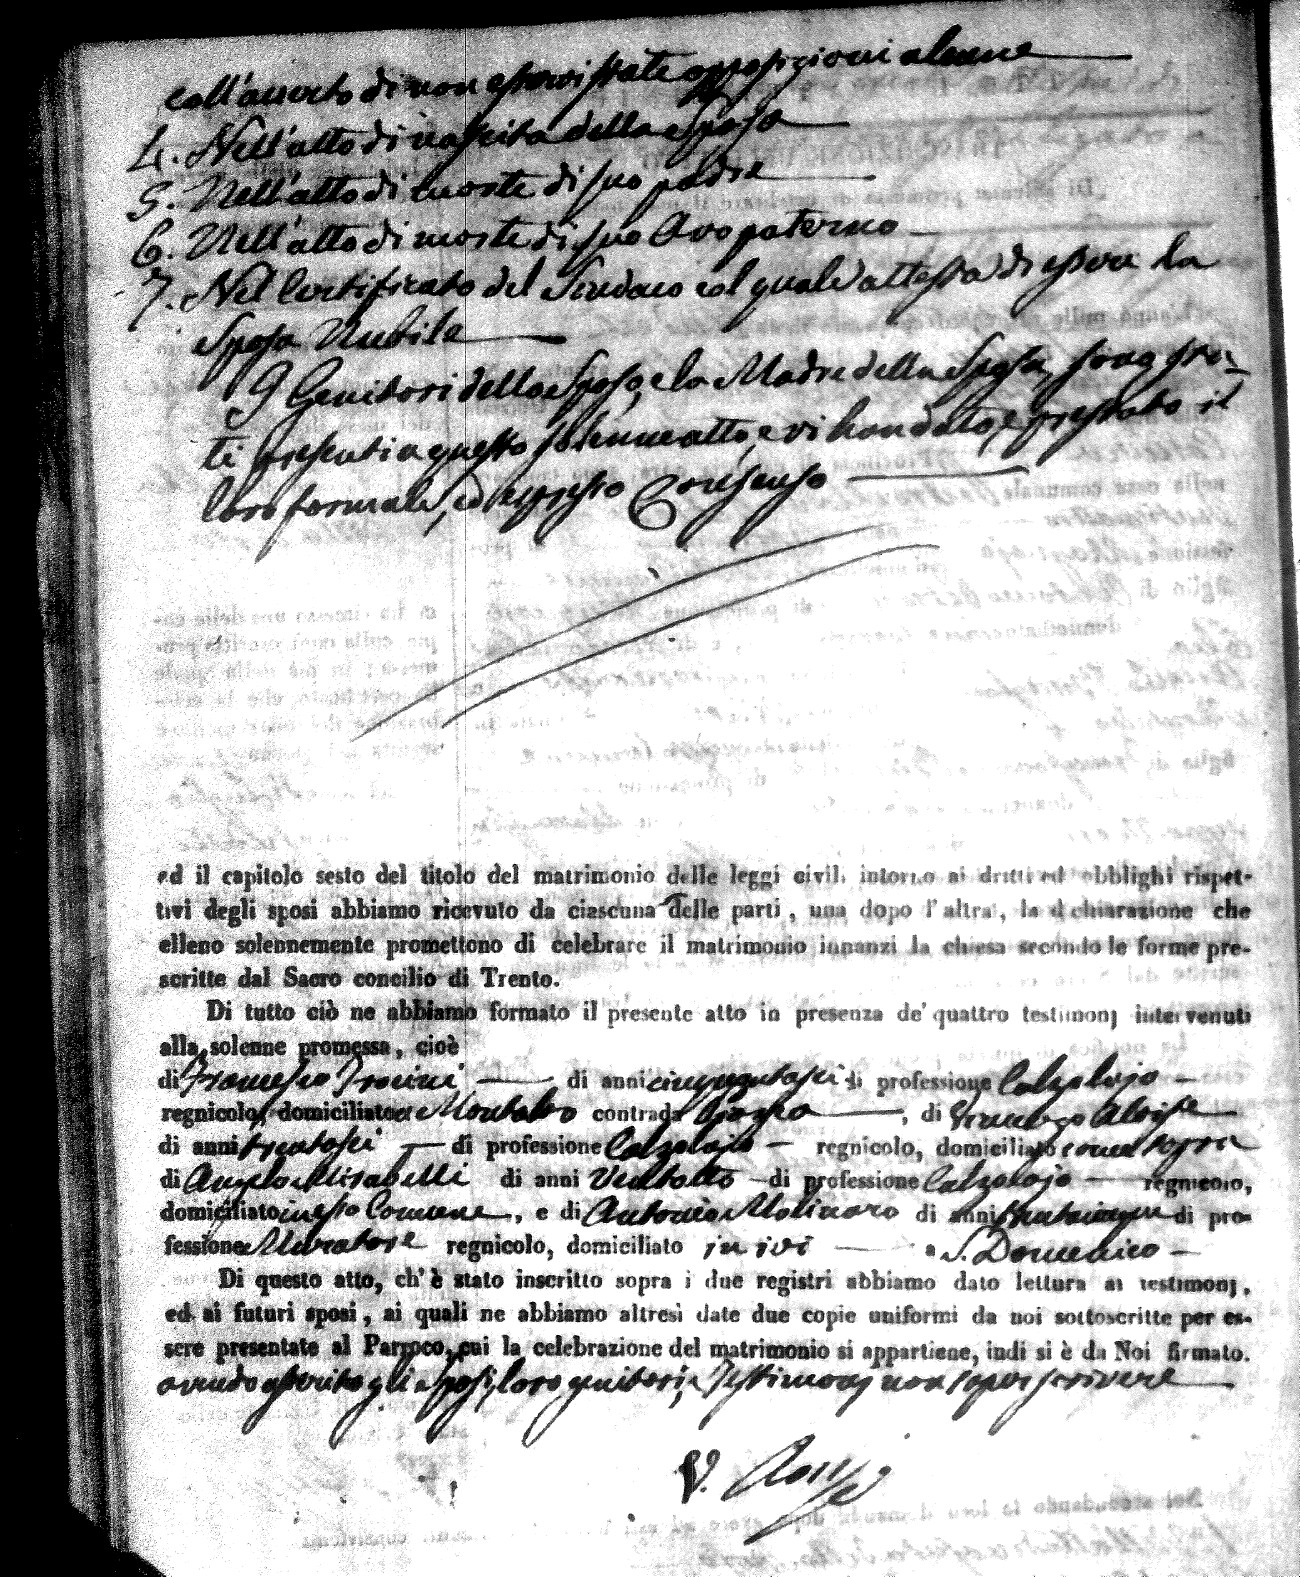 coll'asserto di non esservi state opposizioni alcune
4. Nell'atto di nascita della Sposa
5. Nell'atto di morte di suo padre
6. Nell'atto di morte di suo Avo paterno
7. Nel Certificato del Sindaco col quale attesta di essere la
Sposa Nubile
I Genitori dello Sposo, e la Madre della Sposa, sono sta-
ti presenti a questo solenne atto, e vi han dato, e prestato il
loro formale, ed espresso Consenso
ed il capitolo sesto del titolo del matrimonio delle leggi civili intorno ai dritti ed obblighi rispet-
tivi degli sposi abbiamo ricevuto da ciascuna delle parti, una dopo l'altra, la dichiarazione che
elleno solennemente promettono di celebrare il matrimonio innanzi la chiesa secondo le forme pre-
scritte dal Sacro concilio di Trento.
Di tutto ciò ne abbiamo formato il presente atto in presenza de' quattro testimonj intervenuti
alla solenne promessa, cioè
di Francesco di anni cinquantasei di professione Calzolajo
regnicolo, domiciliato a Montalto contrada, di Vincenzo Aloise
di anni trentasei di professione Calzolajo regnicolo, domiciliato come sopra
di Angelo Mirabelli di anni Ventotto di professione Calzolajo regnicolo,
domiciliato in esso Comune, e di Antonio Molinaro di anni trentacinque di pro-
fessione Muratore regnicolo, domiciliato in ivi a S. Domenico
Di questo atto, ch'è stato inscritto sopra i due registri abbiamo dato lettura ai testimonj,
ed ai futuri sposi, ai quali ne abbiamo altresì date due copie uniformi da noi sottoscritte per es-
sere presentate al Parroco, cui la celebrazione del matrimonio si appartiene, indi si è da Noi firmato.
avendo asserito gli Sposi, loro genitori, e Testimonj non saper scrivere